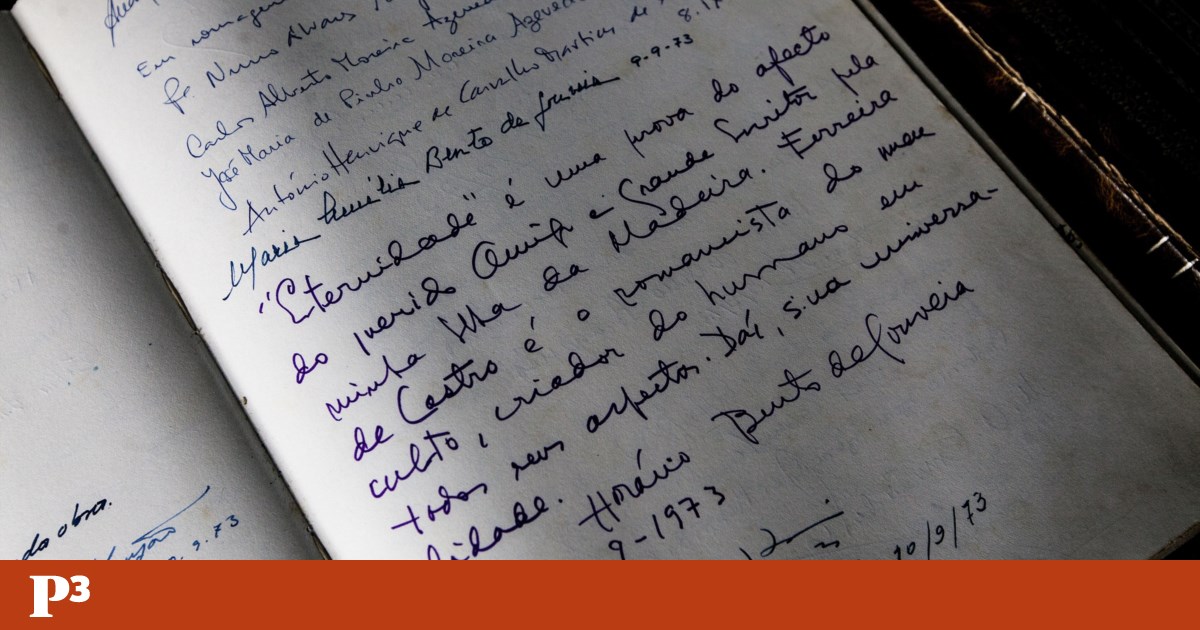 Em
Pe Nuno Alvares
Carlos Alberto Moreira Azevedo
José Maria de Pinho Moreira Azevedo
António Henrique de Carvalho Martins de
8.
Maria Emília Bento de Gouveia 9-9-73
"Eternidade" é uma prova do afecto
do querido Amigo e Grande Escritor pela
minha Ilha da Madeira. Ferreira
de Castro é o romancista do meu
culto, criador do humano em
todos seus aspectos. Daí, sua universa-
lidade. Horário Bento de Gouveia
9-1973
10/9/73
da obra.
9.73
P3